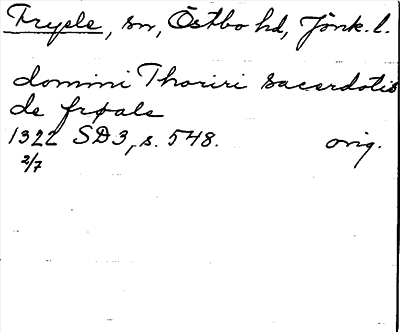 Fryele, sn, Östbo hd, Jönk. l.
domini Thoriri sacerdotis
de frøale
1322 SD3, s. 548. orig.
2/7